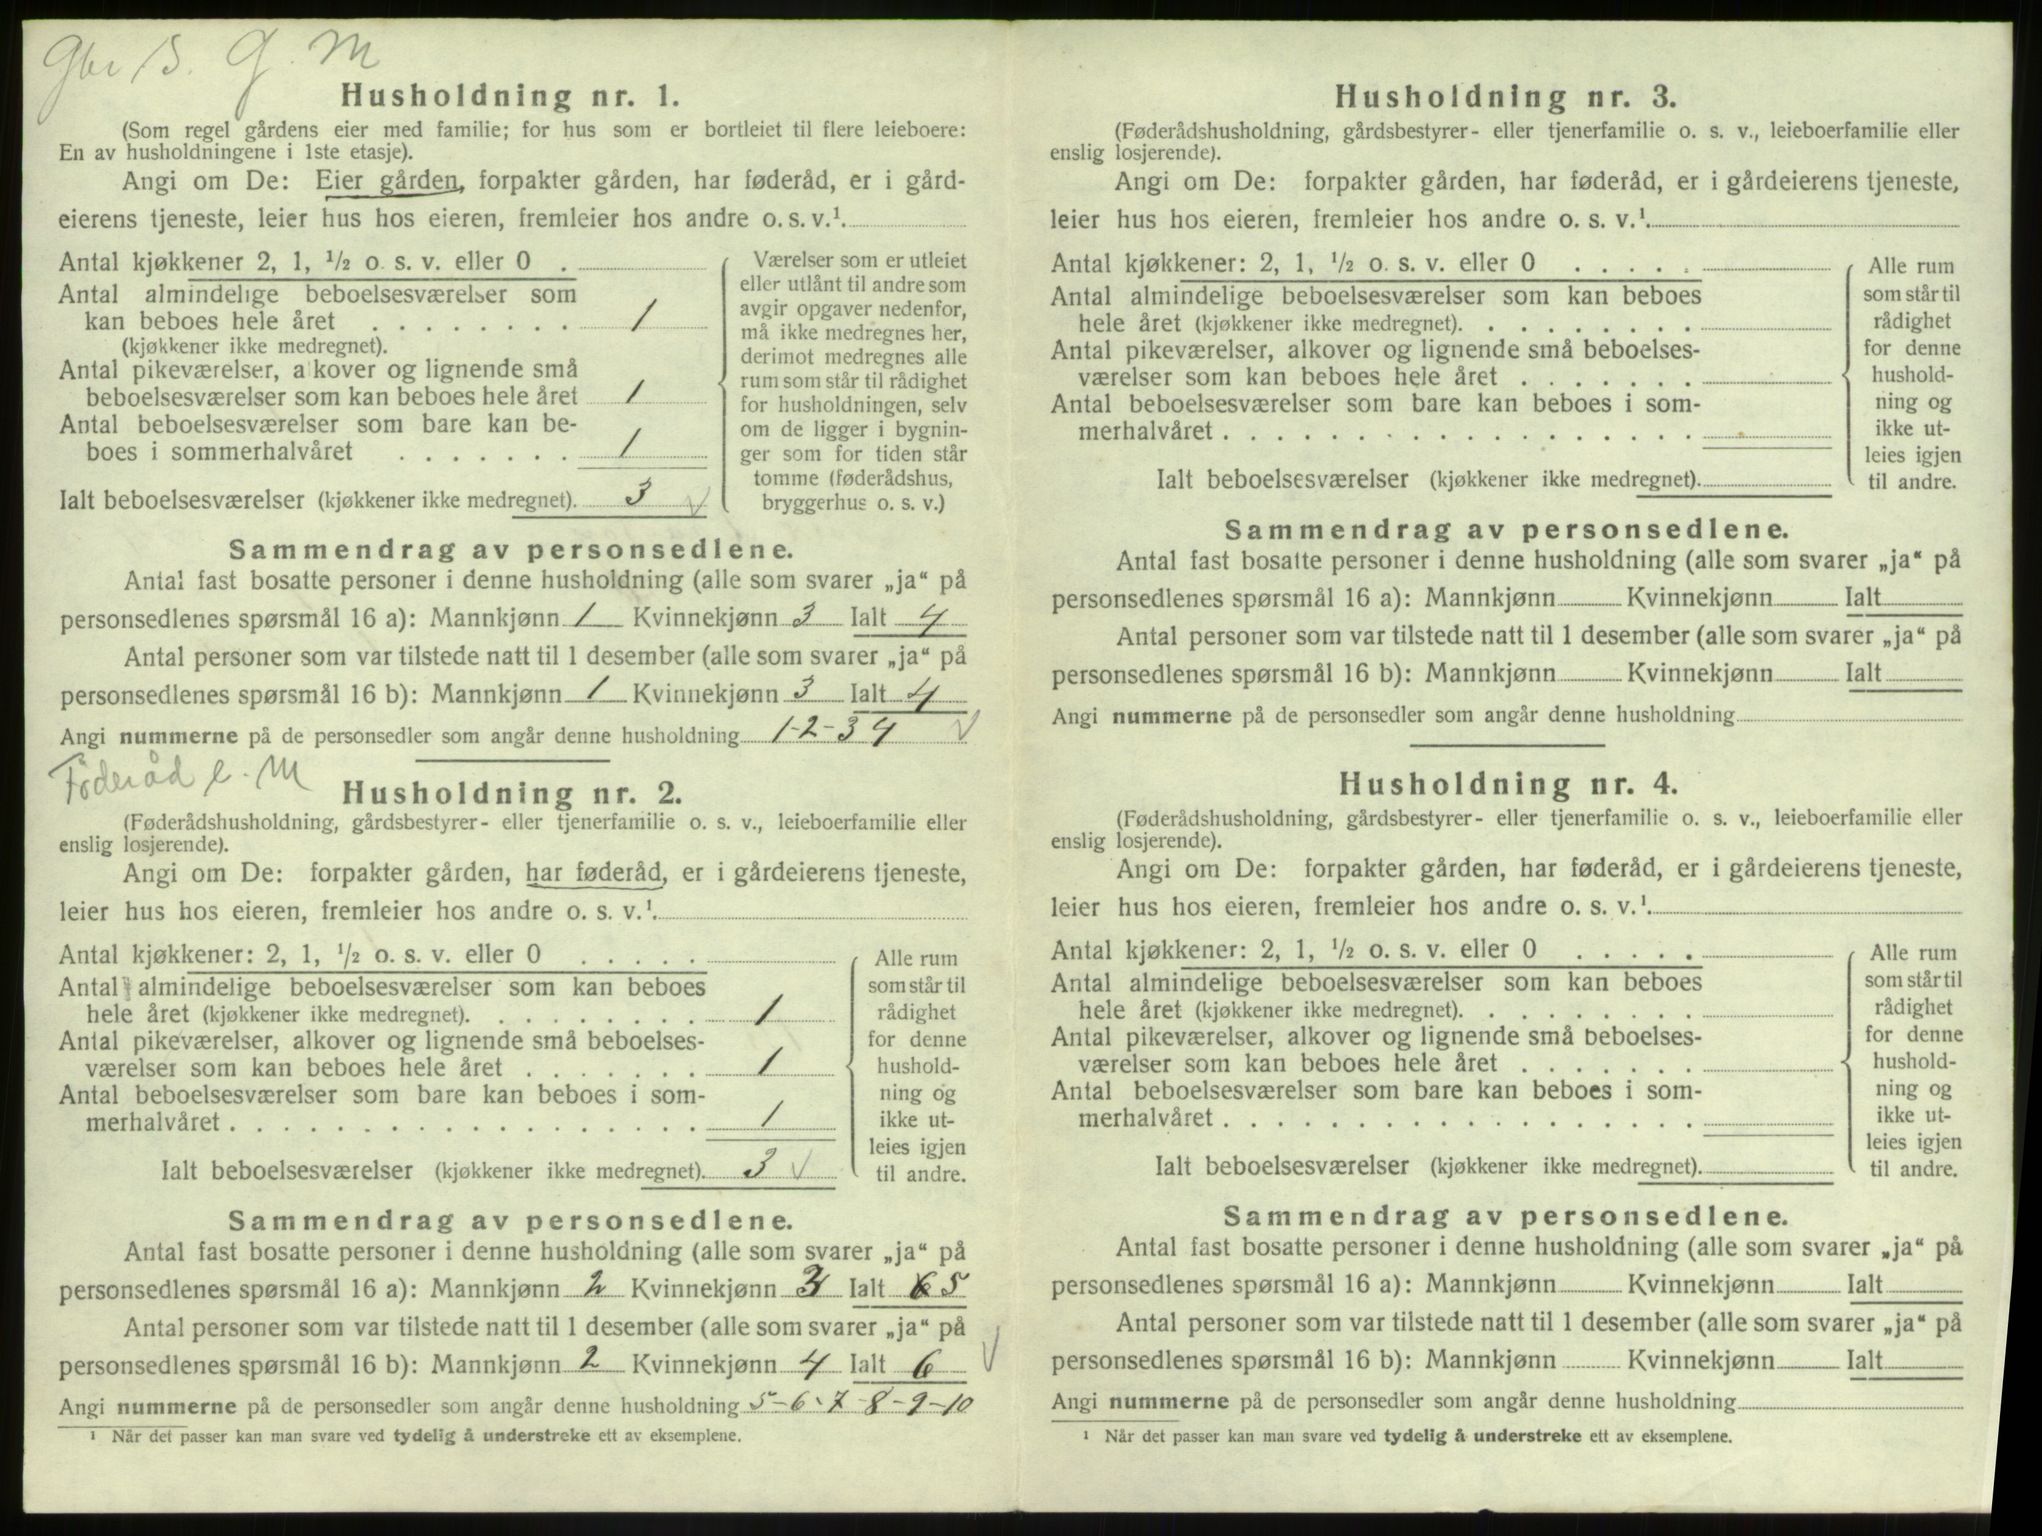 Gbr B. G. M
Husholdning nr. 1.
(Som regel gårdens eier med familie; for hus som er bortleiet til flere leieboere:
En av husholdningene i 1ste etasje).
Angi om De: Eier gården, forpakter gården, har føderåd, er i gård-
eierens tjeneste, leier hus hos eieren, fremleier hos andre o. s. v.¹.
Antal kjøkkener 2, 1, ½ o. s. v. eller 0 .
Antal almindelige beboelsesværelser som
kan beboes hele året . . . . . . . . 1
(kjøkkener ikke medregnet).
Antal pikeværelser, alkover og lignende små
beboelsesværelser som kan beboes hele året 1
Antal beboelsesværelser som bare kan be-
boes i sommerhalvåret . . . . . . . 1
Ialt beboelsesværelser (kjøkkener ikke medregnet). 3 ✓
Værelser som er utleiet
eller utlånt til andre som
avgir opgaver nedenfor,
må ikke medregnes her,
derimot medregnes alle
rum som står til rådighet
for husholdningen, selv
om de ligger i bygnin-
ger som for tiden står
tomme (føderådshus,
bryggerhus o. s. v.)
Sammendrag av personsedlene.
Antal fast bosatte personer i denne husholdning (alle som svarer „ja“ på
personsedlenes spørsmål 16 a): Mannkjønn 1 Kvinnekjønn 3 Ialt 4
Antal personer som var tilstede natt til 1 desember (alle som svarer „ja“ på
personsedlenes spørsmål 16 b): Mannkjønn 1 Kvinnekjønn 3 Ialt 4
Angi nummerne på de personsedler som angår denne husholdning 1-2-3 4 ✓
Føderåd e. M
Husholdning nr. 2.
(Føderådshusholdning, gårdsbestyrer- eller tjenerfamilie o. s. v., leieboerfamilie eller
enslig losjerende).
Angi om De: forpakter gården, har føderåd, er i gårdeierens tjeneste,
leier hus hos eieren, fremleier hos andre o. s. v.¹.
Antal kjøkkener: 2, 1, ½ o. s. v. eller 0 . . . . .
Antal almindelige beboelsesværelser som kan beboes
hele året (kjøkkener ikke medregnet). . . . . . . . . 1
Antal pikeværelser, alkover og lignende små beboelses-
værelser som kan beboes hele året . . . . . . . 1
Antal beboelsesværelser som bare kan beboes i som-
merhalvåret . . . . . . . . . . . . . . . . . . 1
Ialt beboelsesværelser (kjøkkener ikke medregnet). 3 ✓
Alle rum
som står til
rådighet
for denne
hushold-
ning og
ikke ut-
leies igjen
til andre.
Sammendrag av personsedlene.
Antal fast bosatte personer i denne husholdning (alle som svarer „ja“ på
personsedlenes spørsmål 16 a): Mannkjønn 2 Kvinnekjønn 3 Ialt 6 5
Antal personer som var tilstede natt til 1 desember (alle som svarer „ja“ på
personsedlenes spørsmål 16 b): Mannkjønn 2 Kvinnekjønn 4 Ialt 6 ✓
Angi nummerne på de personsedler som angår denne husholdning 5-6-7-8-9-10
¹ Når det passer kan man svare ved tydelig å understreke ett av eksemplene.
Husholdning nr. 3.
(Føderådshusholdning, gårdsbestyrer- eller tjenerfamilie o. s. v., leieboerfamilie eller
enslig losjerende).
Angi om De: forpakter gården, har føderåd, er i gårdeierens tjeneste,
leier hus hos eieren, fremleier hos andre o. s. v.¹.
Antal kjøkkener: 2, 1, ½ o. s. v. eller 0 . . . . .
Antal almindelige beboelsesværelser som kan beboes
hele året (kjøkkener ikke medregnet). . . . . . . . .
Antal pikeværelser, alkover og lignende små beboelses-
værelser som kan beboes hele året . . . . . . .
Antal beboelsesværelser som bare kan beboes i som-
merhalvåret . . . . . . . . . . . . . . . . . .
Ialt beboelsesværelser (kjøkkener ikke medregnet).
Alle rum
som står til
rådighet
for denne
hushold-
ning og
ikke ut-
leies igjen
til andre.
Sammendrag av personsedlene.
Antal fast bosatte personer i denne husholdning (alle som svarer „ja“ på
personsedlenes spørsmål 16 a): Mannkjønn Kvinnekjønn Ialt
Antal personer som var tilstede natt til 1 desember (alle som svarer „ja“ på
personsedlenes spørsmål 16 b): Mannkjønn Kvinnekjønn Ialt
Angi nummerne på de personsedler som angår denne husholdning
Husholdning nr. 4.
(Føderådshusholdning, gårdsbestyrer- eller tjenerfamilie o. s. v., leieboerfamilie eller
enslig losjerende).
Angi om De: forpakter gården, har føderåd, er i gårdeierens tjeneste,
leier hus hos eieren, fremleier hos andre o. s. v.¹.
Antal kjøkkener: 2, 1, ½ o. s. v. eller 0 . . . . .
Antal almindelige beboelsesværelser som kan beboes
hele året (kjøkkener ikke medregnet). . . . . . . . .
Antal pikeværelser, alkover og lignende små beboelses-
værelser som kan beboes hele året . . . . . . .
Antal beboelsesværelser som bare kan beboes i som-
merhalvåret . . . . . . . . . . . . . . . . . .
Ialt beboelsesværelser (kjøkkener ikke medregnet).
Alle rum
som står til
rådighet
for denne
hushold-
ning og
ikke ut-
leies igjen
til andre.
Sammendrag av personsedlene.
Antal fast bosatte personer i denne husholdning (alle som svarer „ja“ på
personsedlenes spørsmål 16 a): Mannkjønn Kvinnekjønn Ialt
Antal personer som var tilstede natt til 1 desember (alle som svarer „ja“ på
personsedlenes spørsmål 16 b): Mannkjønn Kvinnekjønn Ialt
Angi nummerne på de personsedler som angår denne husholdning
¹ Når det passer kan man svare ved tydelig å understreke ett av eksemplene.